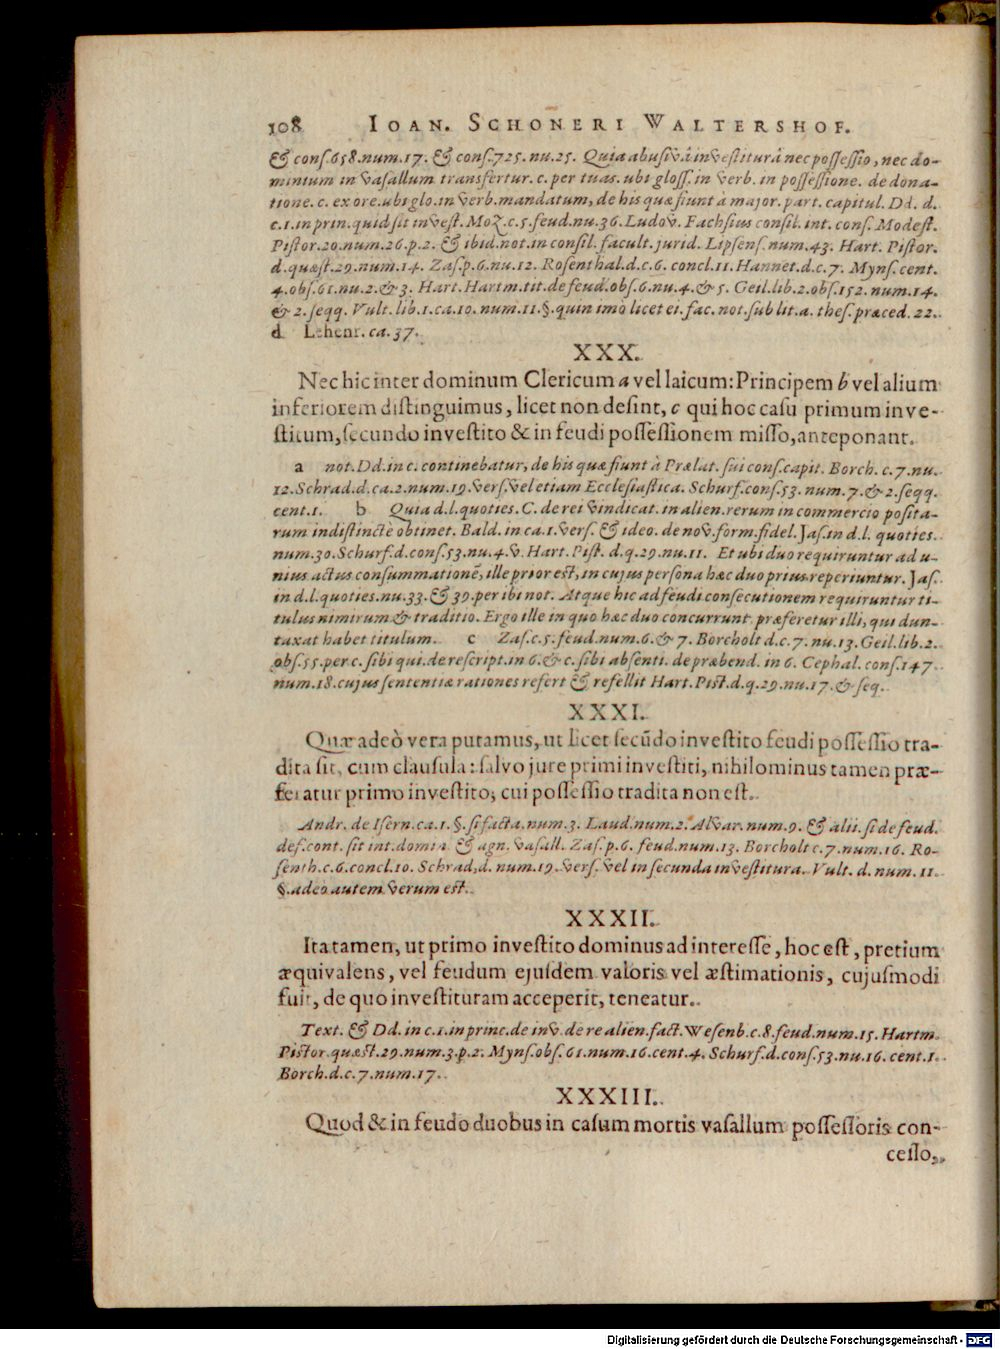 108 IOAN. SCHONERI WALTERSHOF.
& conſ.658.num.17. & conſ.725.nu.25. Quia abuſivâ inveſtiturâ nec poſſeſſio, nec do-
minium in vaſallum transfertur. c. per tuas. ubi gloſſ. in verb. in poſſeſſione. de dona-
tione. c. ex ore. ubi glo. in verb. mandatum, de his quæ fiunt à major. part. capitul. Dd. d.
c.1. in prin. quid ſit inveſt. Moz. c.5. feud. nu.36. Ludov. Fachſius conſil. int. conſ. Modeſt.
Piſtor.20.num.26.p.2. & ibid. not. in conſil. facult. jurid. Lipſenſ. num.43. Hart. Piſtor.
d. quæſt.29.num.14. Zaſ.p.6.nu.12. Roſenthal.d.c.6. concl.11. Hannet.d.c.7. Mynſ. cent.
4.obſ.61.nu.2.&3. Hart. Hartm. tit. de feud. obſ.6.nu.4.&5. Geil.lib.2.obſ.152.num.14.
& 2.ſeqq. Vult. lib.1.ca.10. num.11.§. quin imò licet ei. fac. not. ſub lit.a. theſ. præced.22.
d Lehenr. ca.37.
XXX.
Nec hic inter dominum Clericum a vel laicum: Principem b vel alium
inferiorem diſtinguimus, licet non deſint, c qui hoc caſu primum inve-
ſtitum, ſecundo inveſtito & in feudi poſſeſſionem miſſo, anteponant.
a not. Dd. in c. continebatur, de his quæ fiunt à Prælat. ſui conſ. capit. Borch. c.7.nu.
12. Schrad.d.ca.2.num.19. verſ. vel etiam Eccleſiaſtica. Schurf.conſ.53. num.7.&2.ſeqq.
cent.1. b Quia d.l. quoties. C. de rei vindicat. in alien. rerum in commercio poſita-
rum indiſtinctè obtinet. Bald. in ca.1. verſ. & ideo. de nov. form. fidel. Jaſ. in d.l. quoties.
num.30. Schurf.d.conſ.53.nu.4. v. Hart. Piſt. d.q.29.nu.11. Et ubi duo requiruntur ad u-
nius actus conſummationē, ille prior eſt, in cujus perſona hæc duo prius reperiuntur. Jaſ.
in d.l. quoties.nu.33.&39. per ibi not. Atque hic ad feudi conſecutionem requiruntur ti-
tulus nimirum & traditio. Ergo ille in quo hæc duo concurrunt præferetur illi, qui dun-
taxat habet titulum. c Zaſ.c.5.feud.num.6.&7. Borcholt d.c.7. nu.13. Geil.lib.2.
obſ.55. per c. ſibi qui. de reſcript. in 6. & c. ſibi abſenti. de præbend. in 6. Cephal. conſ.147.
num.18. cujus ſententiæ rationes refert & refellit Hart. Piſt.d.q.29.nu.17.& ſeq.
XXXI.
Quæ adeò vera putamus, ut licet ſecūdo inveſtito feudi poſſeſſio tra-
dita ſit, cum clauſula: ſalvo jure primi inveſtiti, nihilominus tamen præ-
feratur primo inveſtito, cui poſſeſſio tradita non eſt.
Andr. de Iſern. ca.1.§. ſi facta. num.3. Laud. num.2. Alvar. num.9. & alii. ſi de feud.
def. cont. ſit int. domin. & agn. vaſall. Zaſ.p.6. feud.num.13. Borcholt c.7.num.16. Ro-
ſenth.c.6.concl.10. Schrad,d. num.19. verſ. vel in ſecunda inveſtitura. Vult. d. num.11.
§. adeò autem verum eſt.
XXXII.
Ita tamen, ut primo inveſtito dominus ad intereſſe, hoc eſt, pretium
æquivalens, vel feudum ejuſdem valoris vel æſtimationis, cujuſmodi
fuit, de quo inveſtituram acceperit, teneatur.
Text. & Dd. in c.1. in princ. de inv. de re alien. fact. Weſenb.c.8.feud.num.15. Hartm.
Piſtor. quæſt.29.num.3.p.2. Mynſ.obſ.61.num.16.cent.4. Schurf.d.conſ.53.nu.16. cent.1.
Borch.d.c.7.num.17.
XXXIII.
Quod & in feudo duobus in caſum mortis vaſallum poſſeſſoris con-
ceſſo,
Digitalisierung gefördert durch die Deutsche Forschungsgemeinschaft - DFG